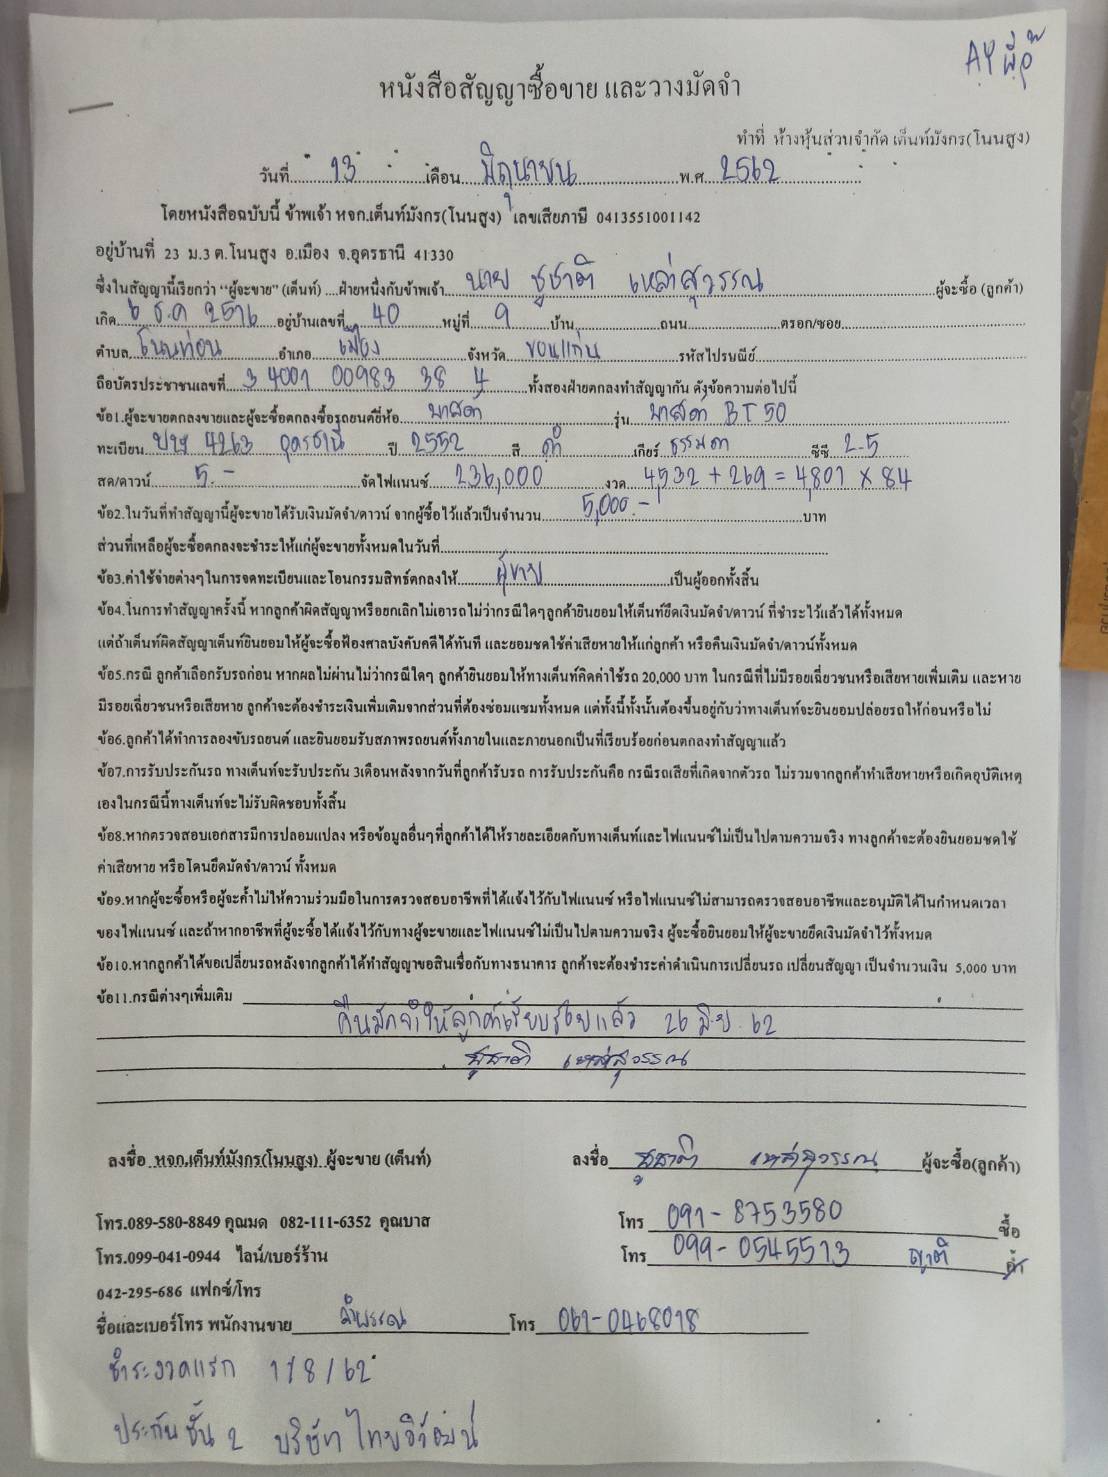 AY พี่อู๊
หนังสือสัญญาซื้อขาย และวางมัดจำ
ทำที่ ห้างหุ้นส่วนจำกัด เต็นท์มังกร(โนนสูง)
วันที่ 13 เดือน มิถุนายน พ.ศ. 2562
โดยหนังสือฉบับนี้ ข้าพเจ้า หจก.เต็นท์มังกร(โนนสูง) เลขเสียภาษี 0413551001142
อยู่บ้านที่ 23 ม.3 ต.โนนสูง อ.เมือง จ.อุดรธานี 41330
ซึ่งในสัญญานี้เรียกว่า "ผู้จะขาย" (เต็นท์) ....ฝ่ายหนึ่งกับข้าพเจ้า นาย ชูชาติ เหล่าสุวรรณ ผู้จะซื้อ (ลูกค้า)
เกิด 6 ธ.ค 2516 อยู่บ้านเลขที่ 40 หมู่ที่ 9 บ้าน ถนน ตรอก/ซอย
ตำบล โนนท่อน อำเภอ เมือง จังหวัด ขอนแก่น รหัสไปรษณีย์
ถือบัตรประชาชนเลขที่ 3 4001 00983 38 4 ทั้งสองฝ่ายตกลงทำสัญญากัน ดังข้อความต่อไปนี้
ข้อ1.ผู้จะขายตกลงขายและผู้จะซื้อตกลงซื้อรถยนต์ยี่ห้อ มาสด้า รุ่น มาสด้า BT 50
ทะเบียน 4263 อุดรธานี ปี 2552 สี ดำ เกียร์ ธรรมดา ซีซี 2.5
สด/ดาวน์ 5.- จัดไฟแนนซ์ 236,000 งวด 4,532 + 269 = 4,801 x 84
ข้อ2.ในวันที่ทำสัญญานี้ผู้จะขายได้รับเงินมัดจำ/ดาวน์ จากผู้ซื้อไว้แล้วเป็นจำนวน 5,000.- บาท
ส่วนที่เหลือผู้จะซื้อตกลงจะชำระให้แก่ผู้จะขายทั้งหมดในวันที่
ข้อ3.ค่าใช้จ่ายต่างๆในการจดทะเบียนและโอนกรรมสิทธ์ตกลงให้ ผู้ขาย เป็นผู้ออกทั้งสิ้น
ข้อ4.ในการทำสัญญาครั้งนี้ หากลูกค้าผิดสัญญาหรือยกเลิกไม่เอารถไม่ว่ากรณีใดๆลูกค้ายินยอมให้เต็นท์ยึดเงินมัดจำ/ดาวน์ ที่ชำระไว้แล้วได้ทั้งหมด
แต่ถ้าเต็นท์ผิดสัญญาเต็นท์ยินยอมให้ผู้จะซื้อฟ้องศาลบังคับคดีได้ทันที และยอมชดใช้ค่าเสียหายให้แก่ลูกค้า หรือคืนเงินมัดจำ/ดาวน์ทั้งหมด
ข้อ5.กรณี ลูกค้าเลือกรับรถก่อน หากผลไม่ผ่านไม่ว่ากรณีใดๆ ลูกค้ายินยอมให้ทางเต็นท์คิดค่าใช้รถ 20,000 บาท ในกรณีที่ไม่มีรอยเฉี่ยวชนหรือเสียหายเพิ่มเติม และหาย
มีรอยเฉี่ยวชนหรือเสียหาย ลูกค้าจะต้องชำระเงินเพิ่มเติมจากส่วนที่ต้องซ่อมแซมทั้งหมด แต่ทั้งนี้ทั้งนั้นต้องขึ้นอยู่กับว่าทางเต็นท์จะยินยอมปล่อยรถให้ก่อนหรือไม่
ข้อ6.ลูกค้าได้ทำการลองขับรถยนต์ และยินยอมรับสภาพรถยนต์ทั้งภายในและภายนอกเป็นที่เรียบร้อยก่อนตกลงทำสัญญาแล้ว
ข้อ7.การรับประกันรถ ทางเต็นท์จะรับประกัน 3เดือนหลังจากวันที่ลูกค้ารับรถ การรับประกันคือ กรณีรถเสียที่เกิดจากตัวรถ ไม่รวมจากลูกค้าทำเสียหายหรือเกิดอุบัติเหตุ
เองในกรณีนี้ทางเต็นท์จะไม่รับผิดชอบทั้งสิ้น
ข้อ8.หากตรวจสอบเอกสารมีการปลอมแปลง หรือข้อมูลอื่นๆที่ลูกค้าได้ให้รายละเอียดกับทางเต็นท์และไฟแนนซ์ไม่เป็นไปตามความจริง ทางลูกค้าจะต้องยินยอมชดใช้
ค่าเสียหาย หรือโดนยึดมัดจำ/ดาวน์ ทั้งหมด
ข้อ9.หากผู้จะซื้อหรือผู้จะค้ำไม่ให้ความร่วมมือในการตรวจสอบอาชีพที่ได้แจ้งไว้กับไฟแนนซ์ หรือไฟแนนซ์ไม่สามารถตรวจสอบอาชีพและอนุมัติได้ในกำหนดเวลา
ของไฟแนนซ์ และถ้าหากอาชีพที่ผู้จะซื้อได้แจ้งไว้กับทางผู้จะขายและไฟแนนซ์ไม่เป็นไปตามความจริง ผู้จะซื้อยินยอมให้ผู้จะขายยึดเงินมัดจำไว้ทั้งหมด
ข้อ10.หากลูกค้าได้ขอเปลี่ยนรถหลังจากลูกค้าได้ทำสัญญาขอสินเชื่อกับทางธนาคาร ลูกค้าจะต้องชำระค่าดำเนินการเปลี่ยนรถ เปลี่ยนสัญญา เป็นจำนวนเงิน 5,000 บาท
ข้อ11.กรณีต่างๆเพิ่มเติม
คืนมัดจำให้ลูกค้าเรียบร้อยแล้ว 26 มิ.ย. 62
ชูชาติ เหล่าสุวรรณ
ลงชื่อ หจก.เต็นท์มังกร(โนนสูง) ผู้จะขาย (เต็นท์) ลงชื่อ ชูชาติ เหล่าสุวรรณ ผู้จะซื้อ(ลูกค้า)
โทร.089-580-8849 คุณมด 082-111-6352 คุณบาส โทร 091-8753580 ซื้อ
โทร.099-041-0944 ไลน์/เบอร์ร้าน โทร 099-0545513 ญาติ ค้ำ
042-295-686 แฟกซ์/โทร
ชื่อและเบอร์โทร พนักงานขาย ลำพรรณ โทร 061-0468018
ชำระงวดแรก 1/8/62
ประกันชั้น 2 บริษัท ไทยวิวัฒน์